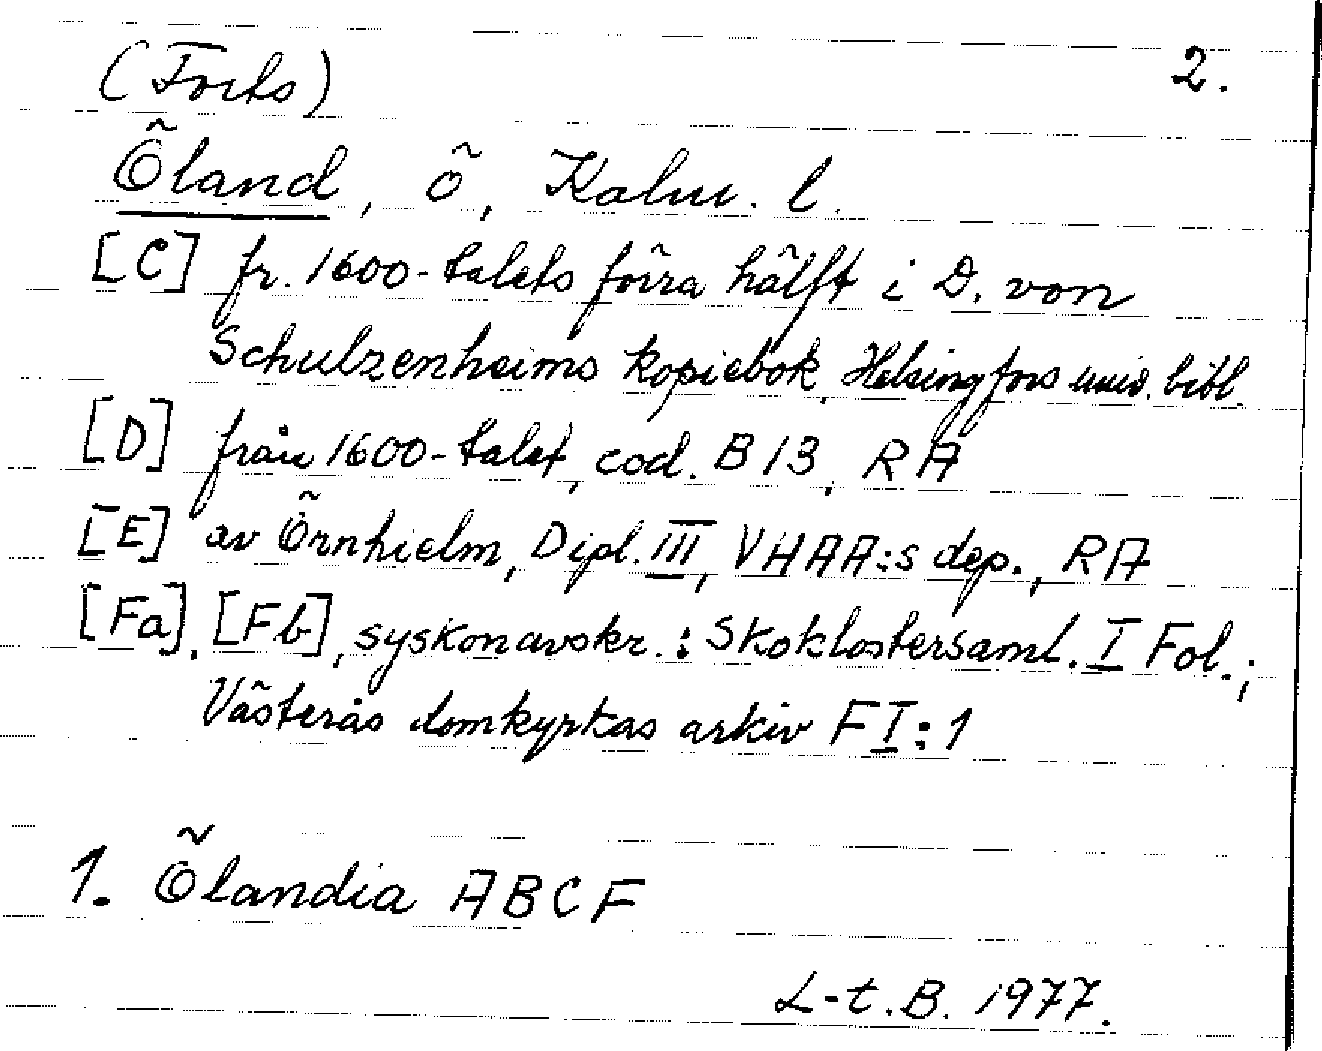 (Forts) 2.
Öland, ö, Kalm. l.
[C] fr. 1600-talets förra hälft i D. von
Schulzenheims kopiebok, Helsingfors univ. bibl.
[D] från 1600-talet, cod. B 13, RA
[E] av Örnhielm, Dipl. III, VHAA:s dep., RA
[Fa], [Fb], syskonavskr.: Skoklostersaml. I Fol.;
Västerås domkyrkas arkiv F I:1
1. Ölandia ABCF
L-t. B. 1977.